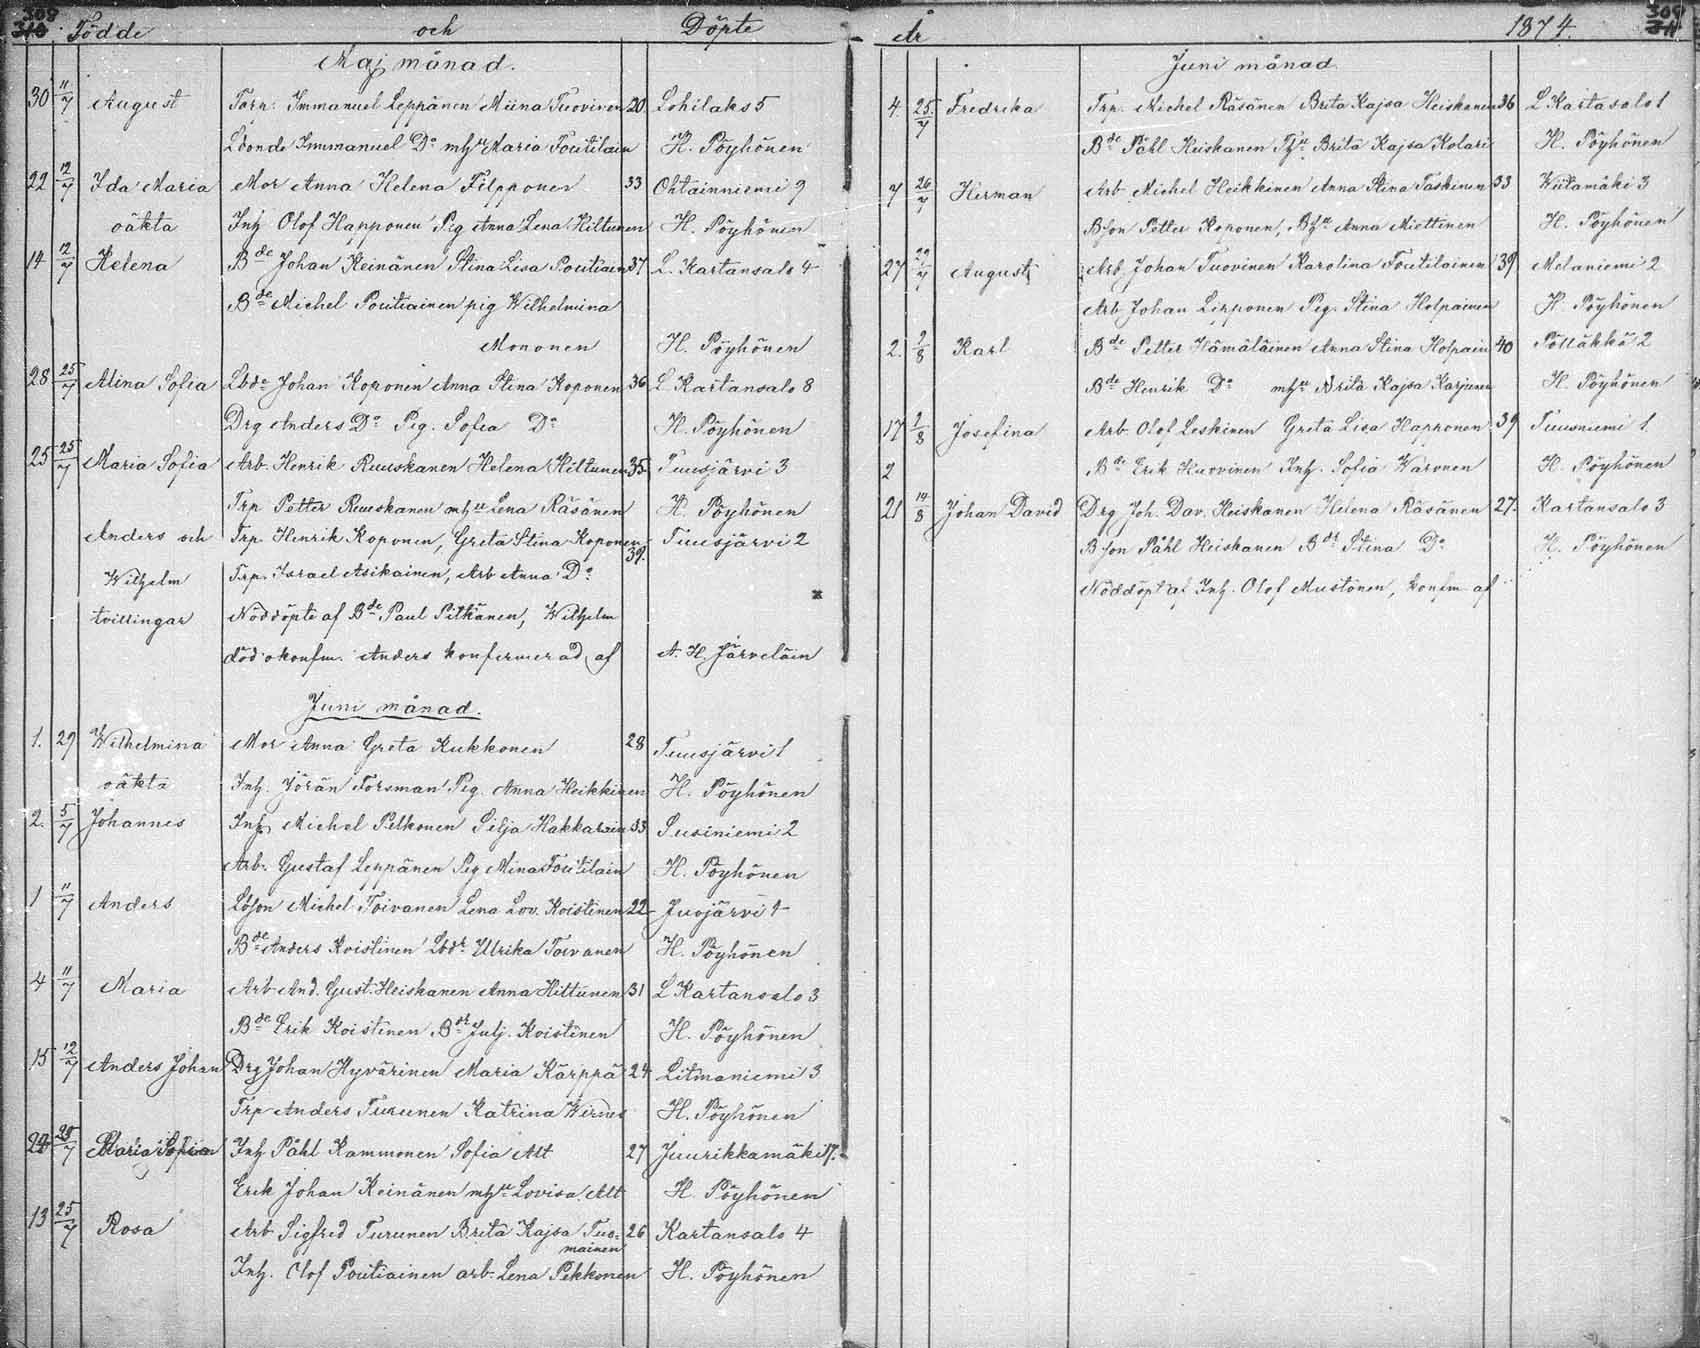 308
310 Födde och Döpte
Maj månad.
30 11/7 August Torp. Immanuel Leppänen Miina Tuovinen 20. Lohilaks 5
Lbonde Immanuel Do mhu Maria Poutilain H. Pöyhönen
22 12/7 Ida Maria Mor Anna Helena Filpponen 33 Ohtainniemi 9
oäkta Inh Olof Happonen Pig Anna Lena Hiltunen H. Pöyhönen
14 12/7 Helena Bde Johan Keinänen Stina Lisa Poutiain 37 L. Kartansalo 4
Bde Michel Poutiainen pig Wilhelmina
Mononen H. Pöyhönen
28 25/7 Alina Sofia Lbde Johan Koponen Anna Stina Koponen 36 L Kartansalo 8
Drg Anders Do Pig. Sofia Do H. Pöyhönen
25 25/7 Maria Sofia Arb. Henrik Ruuskanen Helena Hiltunen 35. Tuusjärvi 3
Trp Petter Ruuskanen mhu Lena Räsänen H. Pöyhönen
Anders och Trp. Henrik Koponen, Greta Stina Koponen 39. Tuusjärvi 2
Wilhelm Trp. Israel Asikainen, Arb Anna Do
tvillingar Nöddöpte af Bde Paul Pitkänen, Wilhelm
död okonfm. Anders konfirmerad af A. H. Järveläin
Juni månad.
1. 29 Wilhelmina Mor Anna Greta Kukkonen 28 Tuusjärvi 1
oäkta Inh. Jörän Forsman Pig. Anna Heikkinen H. Pöyhönen
2. 5/7 Johannes Inh Michel Pelkonen Silja Hakkarain 33 Susiniemi 2
Arb. Gustaf Leppänen Pig Mina Poutilain H. Pöyhönen
1 11/7 Anders Lbson Michel Toivanen Lena Lov. Koistinen 22 Juojärvi 1
Bde Anders Koistinen Lbdr Ulrika Toivanen H. Pöyhönen
4 11/7 Maria Arb And. Gust. Heiskanen Anna Hiltunen 31 L Kartansalo 3
Bde Erik Koistinen Bdr Julj. Koistinen H. Pöyhönen
15 12/7 Anders Johan Drg Johan Hyvärinen Maria Kärppä 24 Litmaniemi 3
Trp Anders Turunen Katrina Wirnes H. Pöyhönen
24 25/7 Maria Sofia Inh Påhl Kammonen Sofia Alt 27 Juurikkamäki 17.
Erik Johan Keinänen mhu Lovisa Alt H. Pöyhönen
13 25/7 Rosa Arb Sigfred Turunen Brita Kajsa Tuo- 26 Kartansalo 4
mainen
Inh. Olof Poutiainen arb. Lena Pekkonen H. Pöyhönen
309
År 1874. 311
Juni månad
4. 25/7 Fredrika Trp. Michel Räsänen Brita Kajsa Heiskanen 36 L Kartasalo 1
Bde Påhl Heiskanen Thu Brita Kajsa Kolari H. Pöyhönen
7 26/7 Herman Arb Michel Heikkinen Anna Stina Taskinen 33 Wiitamäki 3
Bson Petter Koponen, Bhu Anna Miettinen H. Pöyhönen
27 29/7 August Arb. Johan Tuovinen Karolina Poutilainen 39 Melaniemi 2
Arb Johan Lipponen Pig. Stina Holpainen H. Pöyhönen
2. 2/8 Karl Bde Petter Hämäläinen Anna Stina Holpain 40 Pölläkkä 2
Bde Henrik Do mhu Brita Kajsa Karjunen H. Pöyhönen
17 2/8 Josefina Arb. Olof Leskinen Greta Lisa Happonen 39 Tuusniemi 1.
2 Bde Erik Kuovinen Inh. Sofia Waronen H. Pöyhönen
21 14/8 Johan David Drg Joh. Dav. Heiskanen Helena Räsänen 27. Kartansalo 3
Bson Påhl Heiskanen Bdr Stina Do H. Pöyhönen
Nöddöpt af Inh. Olof Mustonen, konfm af